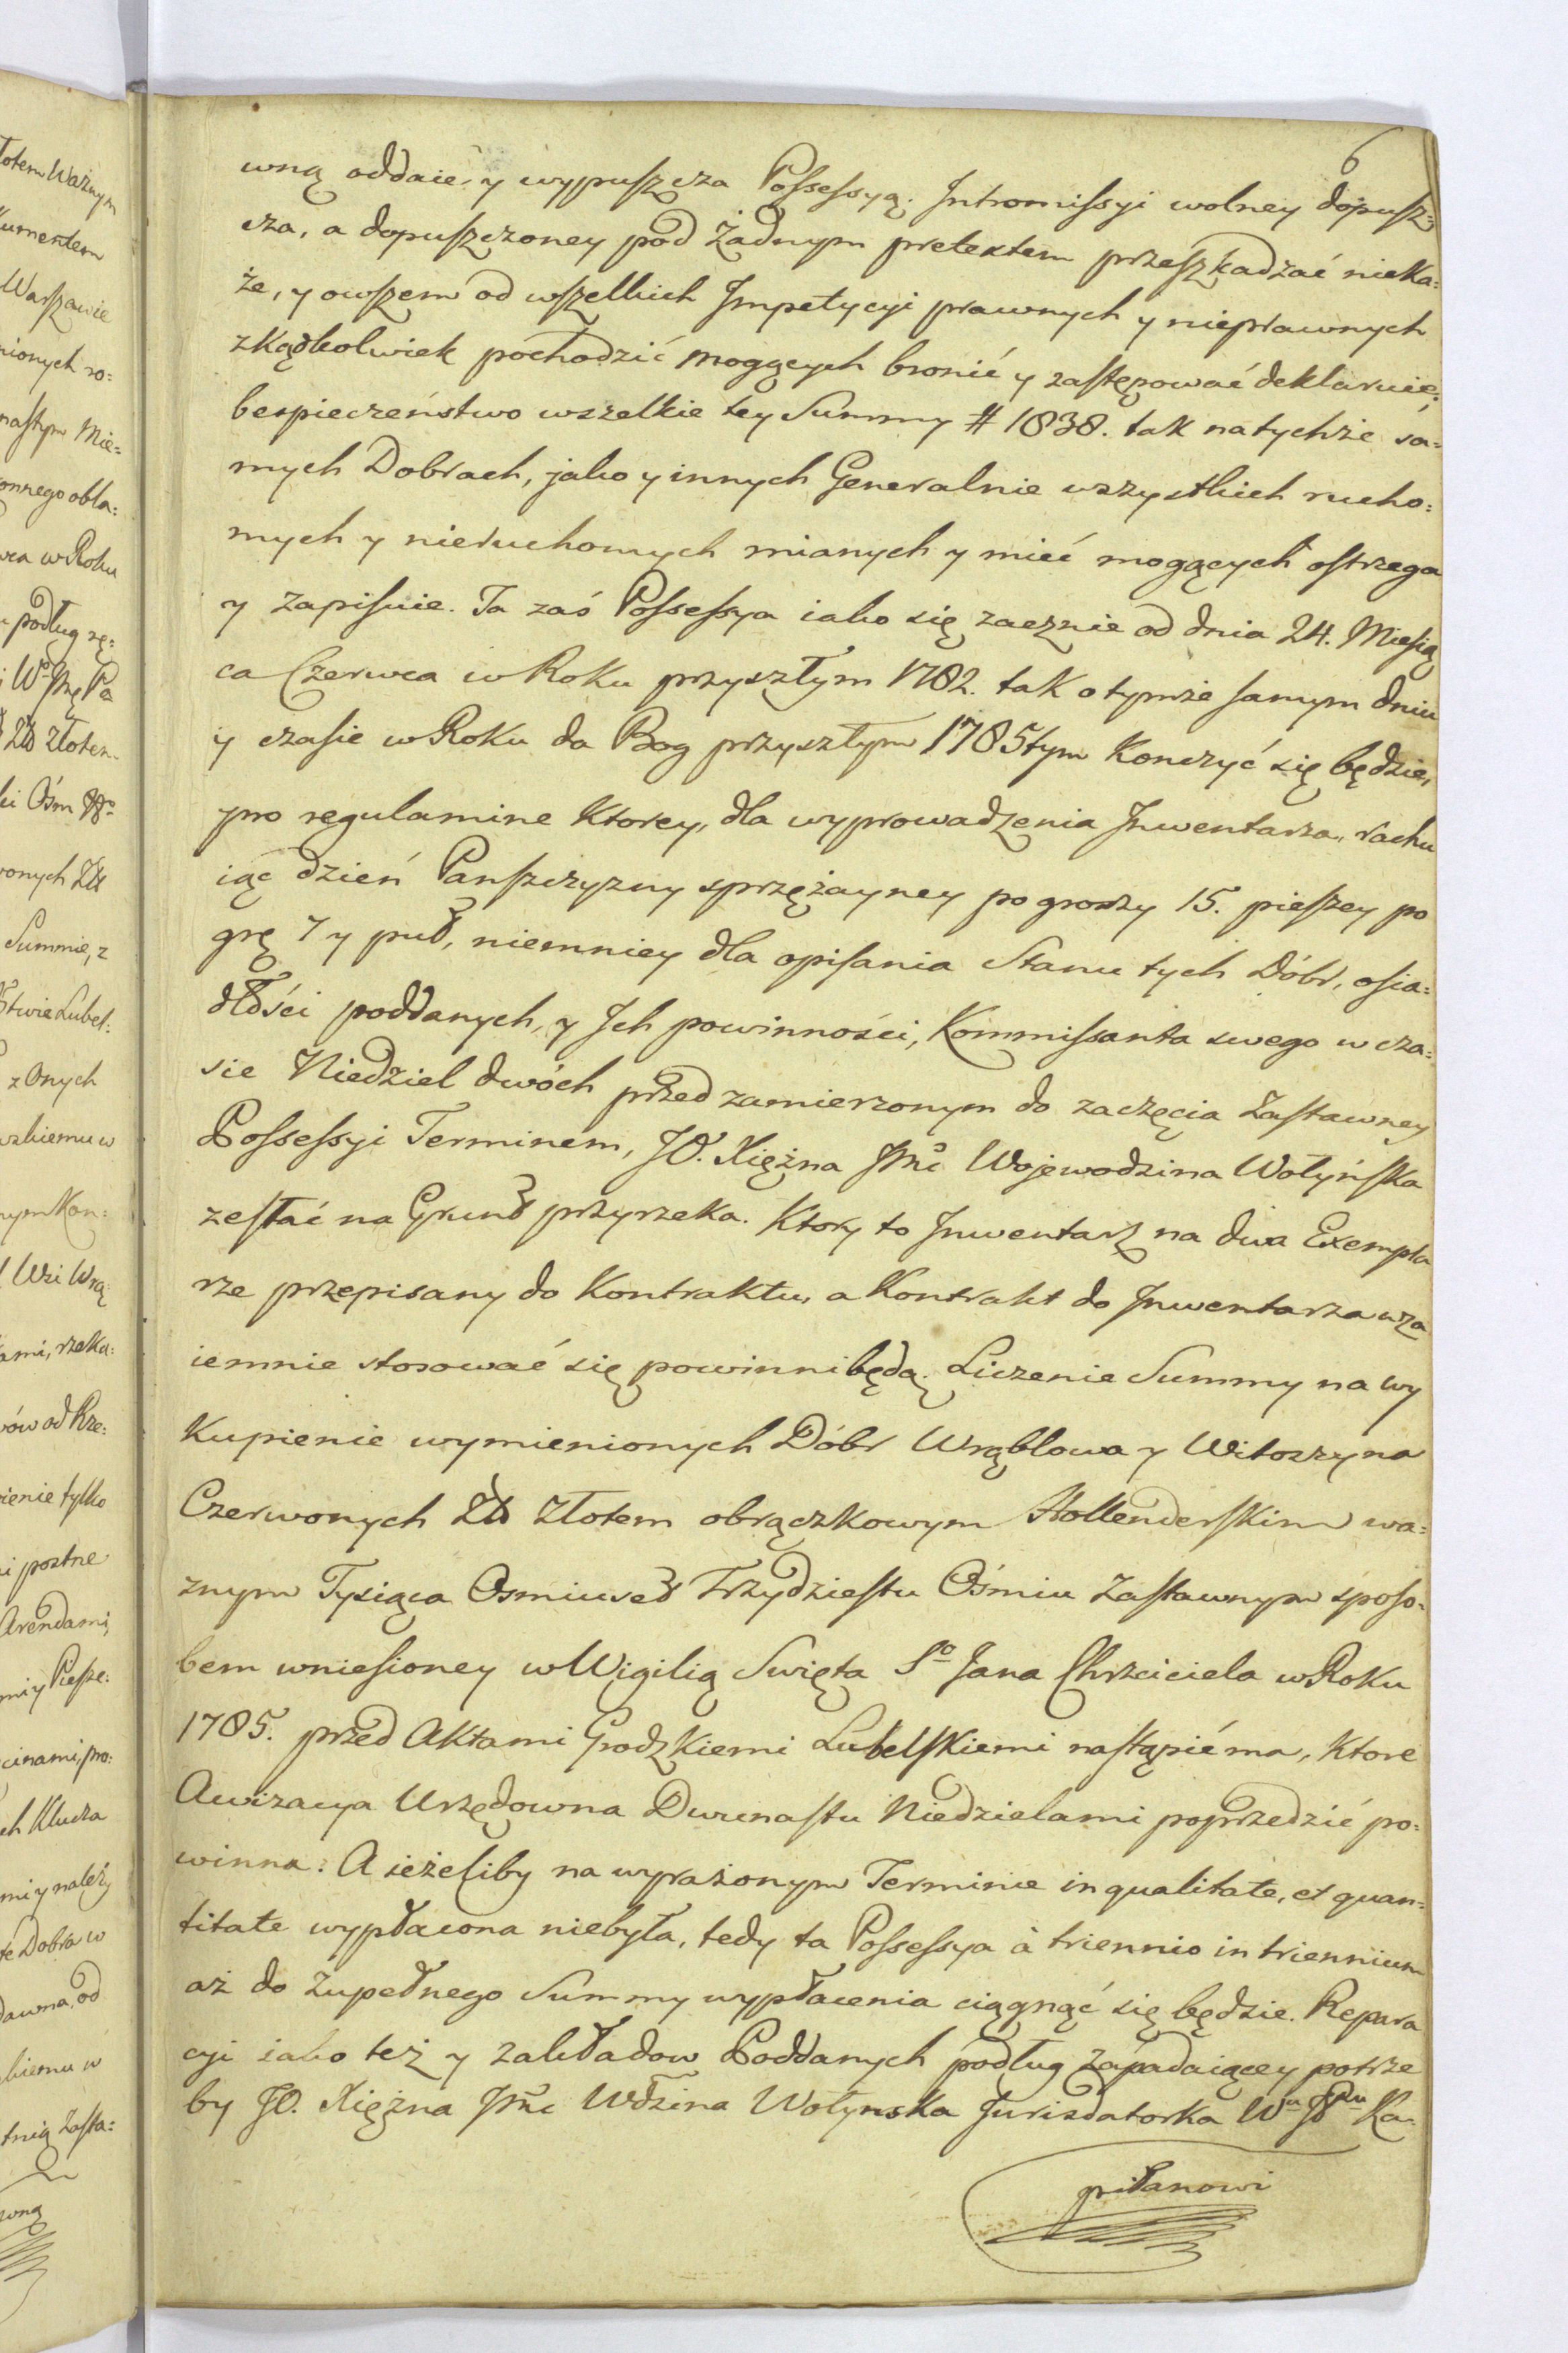 6
wną oddaie, y wypuszcza Possessyą. Intromissyi wolney dopusz=
cza, a dopuszczoney pod żadnym pretextem przeszkadzać nieka=
że, y owszem od wszelkich Impetycyi prawnych y nieprawnych
zkądkolwiek pochodzić mogących bronić y zastępować deklaruie;
bespieczeństwo wszelkie tey Summy # 1838. tak na tychże sa=
mych Dobrach, jako y innych Generalnie wszystkich rucho=
mych y nieruchomych mianych y mieć mogących ostrzega
y zapisuie. Ta zaś Possessya iako się zacznie od dnia 24. Miesią
ca Czerwca w Roku przyszłym 1782. tak o tymże samym dniu
y czasie w Roku da Bog przyszłym 1785tym Konczyć się będzie,
pro regulamine Ktorey, dla wyprowadzenia Inwentarza, rachu
iąc dzień Panszczyzny sprzężayney po groszy 15. pieszey po
grę 7 y puł, niemniey dla opisania Stanu tych Dóbr, osia=
dłości poddanych, y Ich powinności, Kommissanta swego w cza=
sie Niedziel dwóch przed zamierzonym do zaczęcia Zastawney
Possessyi Terminem, JO. Xiężna Jmć Wojewodzina Wołyńska
zesłać na Grunt przyrzeka. Ktory to Inwentarz na dwa Exempla
rze przepisany do Kontraktu, a Kontrakt do Inwentarza wza
iemnie stosować się powinni będą. Liczenie Summy na wy
Kupienie wymienionych Dóbr Wrąblowa y Witoszyna
Czerwonych Złł złotem obrączkowym Hollenderskim wa=
znym Tysiąca Osmiuset Trzydziestu Ośmiu Zastawnym sposo=
bem wniesioney w Wigilią Swięta So Jana Chrzciciela w Roku
1785. przed Aktami Grodzkiemi Lubelskiemi nastąpić ma, Ktore
Awizacya Urzędowna Dwunastu Niedzielami poprzedzić po=
winna: A ieżeliby na wyrażonym Terminie in qualitate, et quan=
titate wypłacona niebyła, tedy ta Possessya à triennio in triennium
aż do zupełnego Summy wypłacenia ciągnąć się będzie. Repara
cyi iako też y zakładow Poddanych podług zapadaiącey potrze
by JO. Xiężna Jmć Wdzina Wołynska Jurisdatorka Wu JPnu Ka=
pitanowi